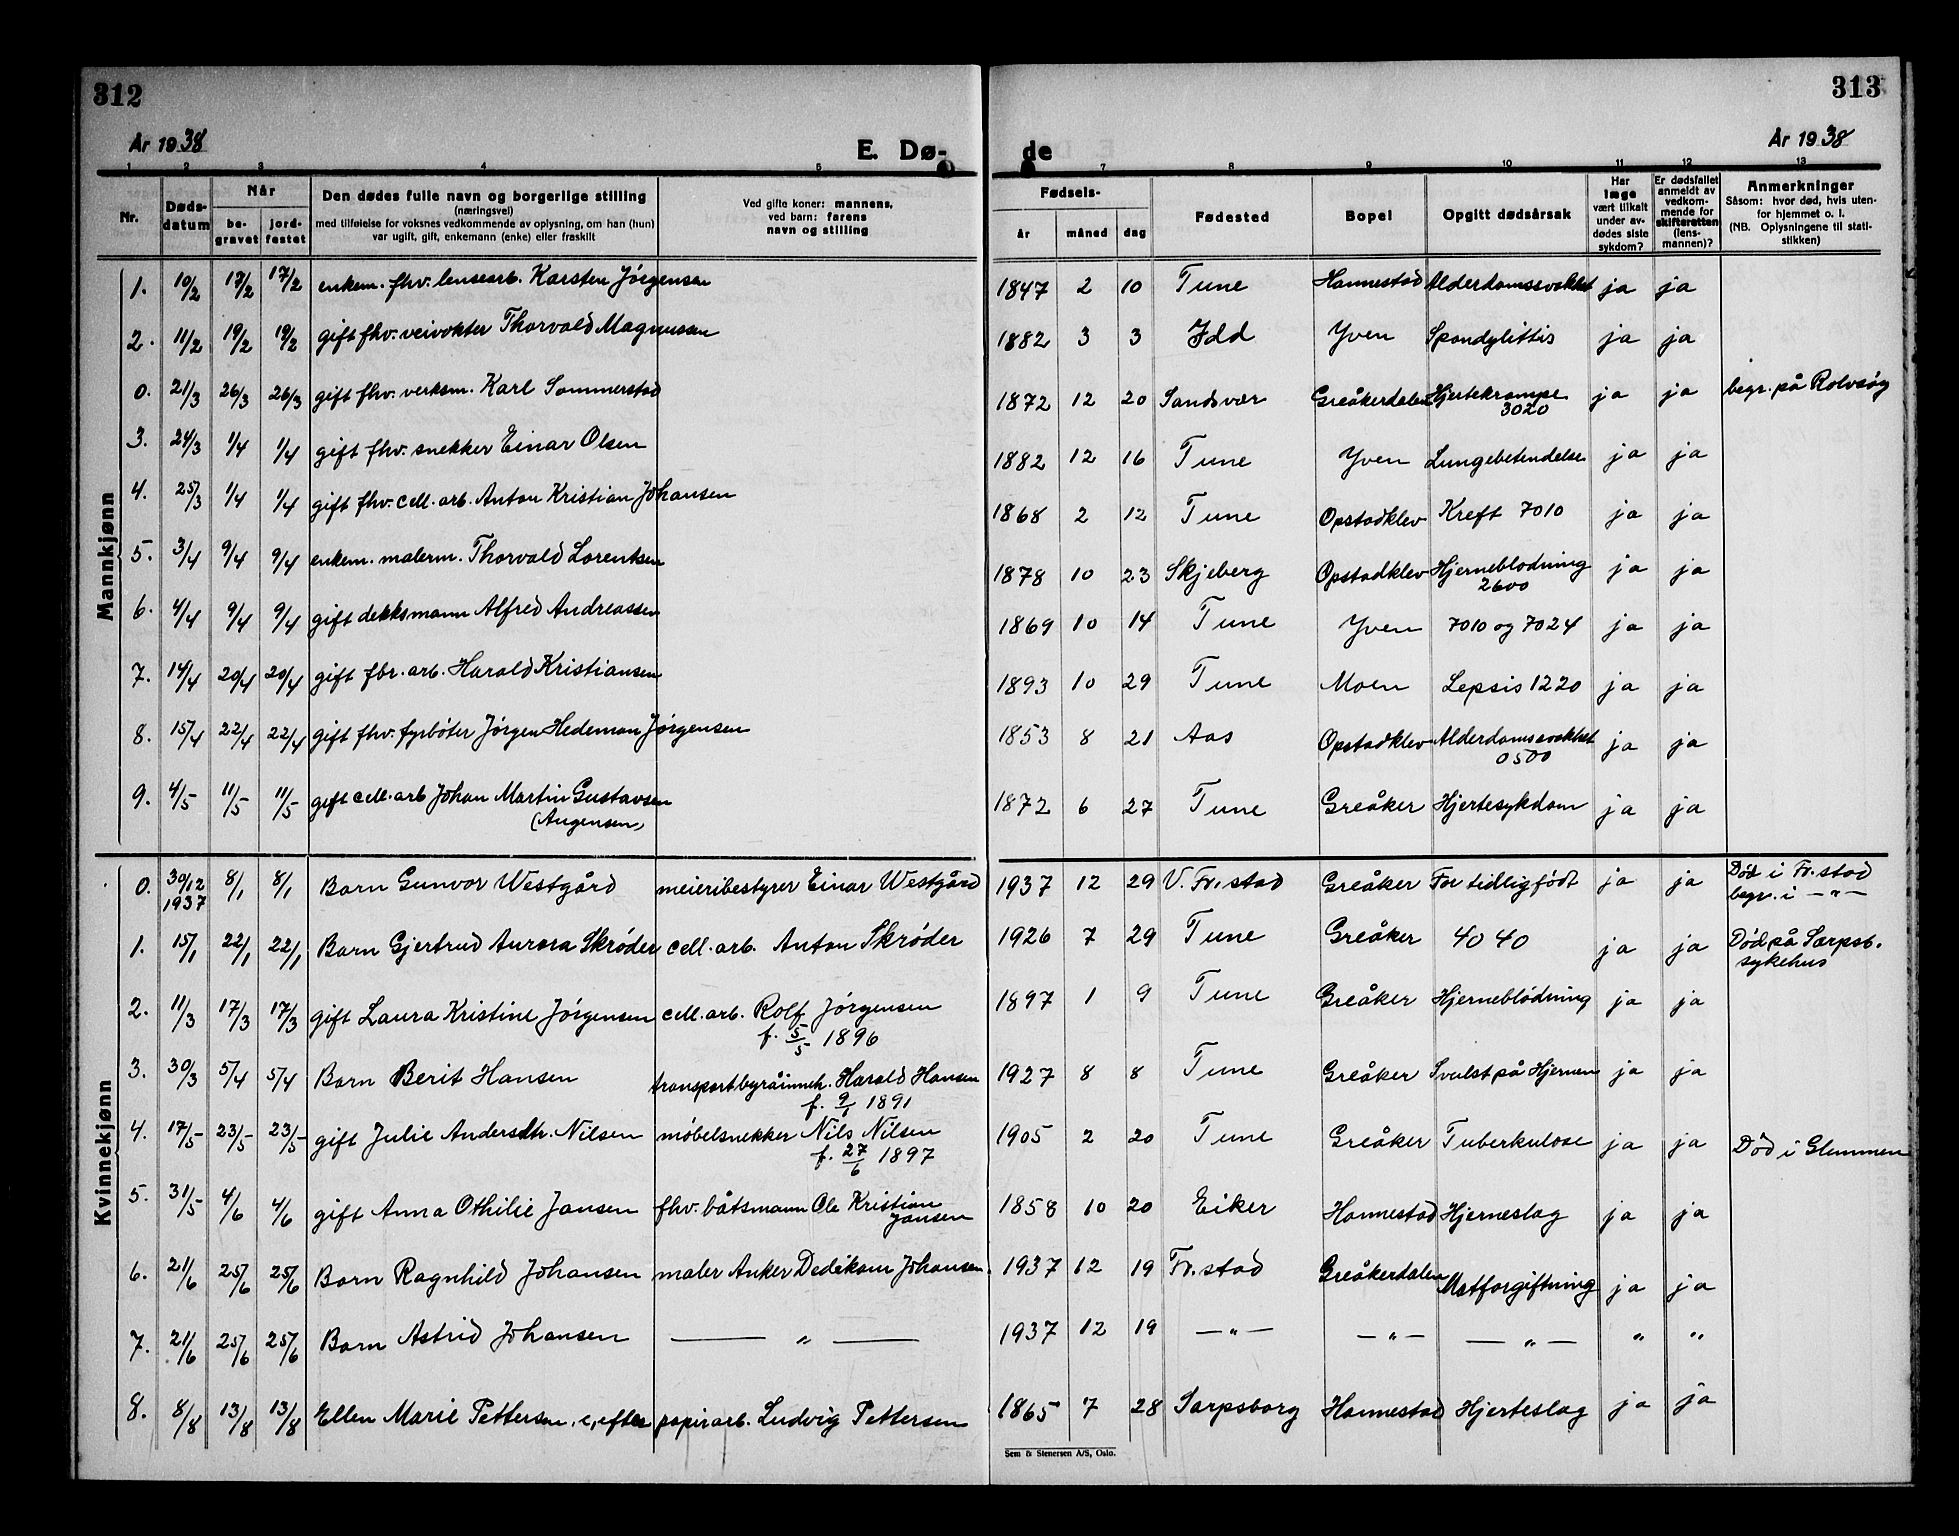 312
313
År 1938
E. Dø-
de
År 1938
1 2 3 4 5 7 8 9 10 11 12 13
Nr.
Døds-
datum
Når
be-
gravet
jord-
festet
Den dødes fulle navn og borgerlige stilling
(næringsvei)
med tilføielse for voksnes vedkommende av oplysning, om han (hun)
var ugift, gift, enkemann (enke) eller fraskilt
Ved gifte koner: mannens,
ved barn: farens
navn og stilling
Fødsels-
år måned dag
Fødested
Bopel
Opgitt dødsårsak
Har
læge
vært tilkalt
under av-
dødes siste
sykdom?
Er dødsfallet
anmeldt av
vedkom-
mende for
skifteretten
(lens-
mannen)?
Anmerkninger
Såsom: hvor død, hvis uten-
for hjemmet o. l.
(NB. Oplysningene til stati-
stikken)
Mannkjønn
1. 10/2 17/2 17/2 enkem. fhv. lensearb. Karsten Jörgensen 1847 2 10 Tune Hannestad Alderdomssvakhet ja ja
2. 11/2 19/2 19/2 gift fhv. veivokter Thorvald Magnussen 1882 3 3 Idd Yven Spondylittis ja ja
0. 21/3 26/3 26/3 gift fhv. verksm. Karl Sommerstad 1872 12 20 Sandsvær Greåkerdalen Hjertekrampe ja ja begr. på Rolvsøy
3020
3. 24/3 1/4 1/4 gift fhv. snekker Einar Olsen 1882 12 16 Tune Yven Lungebetendelse ja ja
4. 25/3 1/4 1/4 gift fhv. cell. arb. Anton Kristian Johansen 1868 2 12 Tune Opstadklev Kreft 7010 ja ja
5. 3/4 9/4 9/4 enkem. malerm. Thorvald Lorentsen 1878 10 23 Skjeberg Opstadklev Hjerneblodning ja ja
2600
6. 4/4 9/4 9/4 gift dekksmann Alfred Andreassen 1869 10 14 Tune Yven 7010 og 7024 ja ja
7. 14/4 20/4 20/4 gift fbr. arb. Harald Kristiansen 1893 10 29 Tune Moen Lepsis 1220 ja ja
8. 15/4 22/4 22/4 gift fhv. fyrböter Jörgen Hedeman Jörgensen 1853 8 21 Aas Opstadklev Alderdomssvakhet ja ja
0500
9. 4/5 11/5 11/5 gift cell. arb Johan Martin Gustavsen 1872 6 27 Tune Greåker Hjertesykdom ja ja
(Augensen)
Kvinnekjønn
0. 30/12 8/1 8/1 Barn Gunvor Westgård meieribestyrer Einar Westgård 1937 12 29 V. Fr. stad Greåker For tidlig födt ja ja Död i Fr. stad
1937 begr. i — " —
1. 15/1 22/1 22/1 Barn Gjertrud Aurora Skröder cell. arb. Anton Skröder 1926 7 29 Tune Greåker 4040 ja ja Död på Sarpsb.
sykehus
2. 11/3 17/3 17/3 gift Laura Kristine Jörgensen cell. arb. Rolf Jörgensen 1897 1 9 Tune Greåker Hjerneblödning ja ja
f. 5/5 1896
3. 30/3 5/4 5/4 Barn Berit Hansen transportbyråinneh. Harald Hansen 1927 8 8 Tune Greåker Svulst på Hjernen ja ja
f. 9/1 1891
4. 17/5 23/5 23/5 gift Julie Andersdtr. Nilsen möbelsnekker Nils Nilsen 1905 2 20 Tune Greåker Tuberkulose ja ja Död i Glemmen
f. 27/6 1897
5. 31/5 4/6 4/6 gift Anna Othilie Jansen fhv. båtsmann Ole Kristian 1858 10 20 Eiker Hannestad Hjerneslag ja ja
Jansen
6. 21/6 25/6 25/6 Barn Ragnhild Johansen maler Anker Dedekam Johansen. 1937 12 19 Fr. stad Greåkerdalen Matforgiftning ja ja
7. 21/6 25/6 25/6 Barn Astrid Johansen — " — 1937 12 19 — " — — " — — " — " "
8. 8/8 13/8 13/8 Ellen Marie Pettersen, e, efter papirarb. Ludvig Pettersen 1865 7 28 Sarpsborg Hannestad Hjerteslag ja ja
Sem & Stenersen A/S, Oslo.